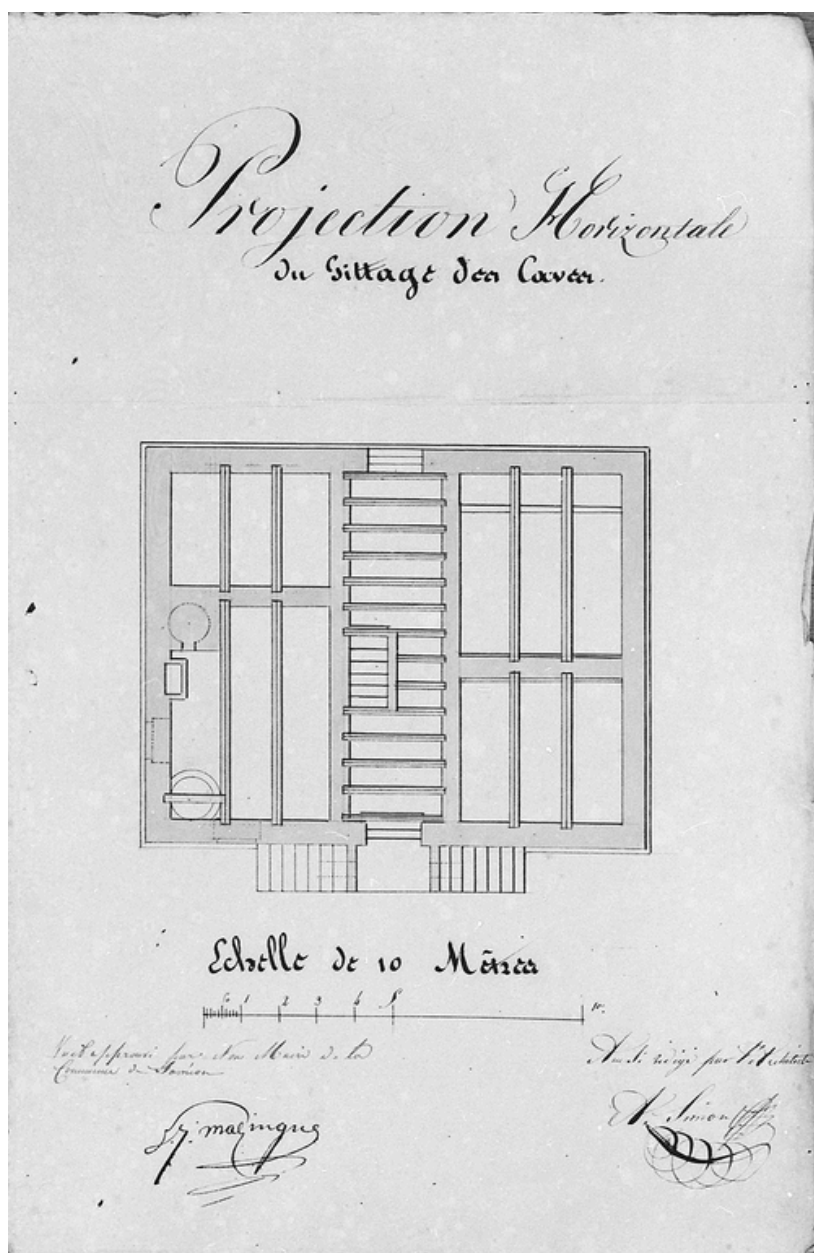 Projection Horizontale
du Gittage des Caves.
Echelle de 10 Mètres
0 1 2 3 4 5 10.
Vu et approuvé par Nous Maire de la
Commune de
Ainsi rédigé par l'Architecte
Simon